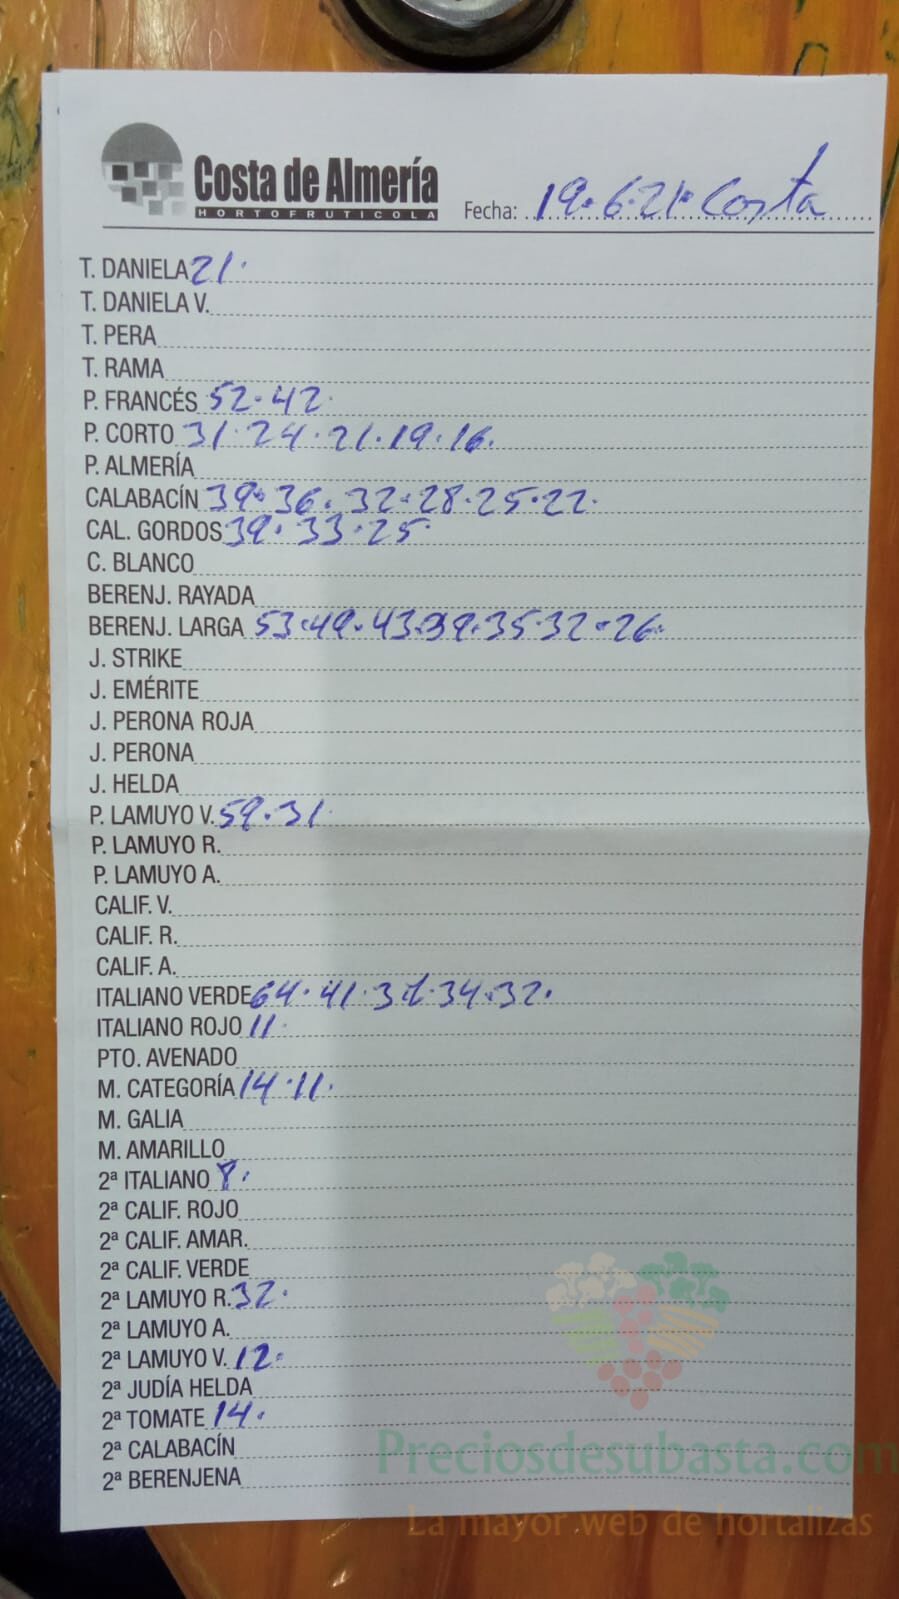 Costa de Almería
HORTOFRUTICOLA
Fecha: 19.6.21. Costa
T. DANIELA 21.
T. DANIELA V.
T. PERA
T. RAMA
P. FRANCÉS 52.42.
P. CORTO 31.24.21.19.16.
P. ALMERÍA
CALABACÍN 39.36.32.28.25.22.
CAL. GORDOS 39.33.25.
C. BLANCO
BERENJ. RAYADA
BERENJ. LARGA 53.49.43.39.35.32.26.
J. STRIKE
J. EMÉRITE
J. PERONA ROJA
J. PERONA
J. HELDA
P. LAMUYO V. 59.31.
P. LAMUYO R.
P. LAMUYO A.
CALIF. V.
CALIF. R.
CALIF. A.
ITALIANO VERDE 64.41. 34.32.
ITALIANO ROJO 11.
PTO. AVENADO
M. CATEGORÍA 14.11.
M. GALIA
M. AMARILLO
2ª ITALIANO 8.
2ª CALIF. ROJO
2ª CALIF. AMAR.
2ª CALIF. VERDE
2ª LAMUYO R. 32.
2ª LAMUYO A.
2ª LAMUYO V. 12.
2ª JUDÍA HELDA
2ª TOMATE 14.
2ª CALABACÍN
2ª BERENJENA
Preciosdesubasta.com
La mayor web de hortalizas